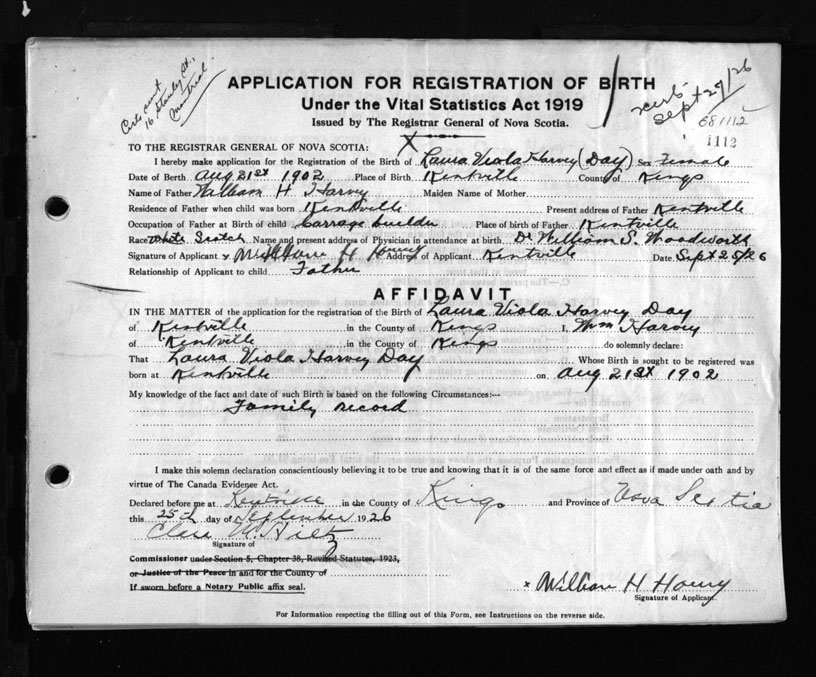 Cert. sent
16 Stanley St.,
Montreal.
APPLICATION FOR REGISTRATION OF BIRTH
Under the Vital Statistics Act 1919
Issued by The Registrar General of Nova Scotia.
Sept 29/26
681112
1112
TO THE REGISTRAR GENERAL OF NOVA SCOTIA:
I hereby make application for the Registration of the Birth of Laura Viola Harvey (Day) Sex Female
Date of Birth Aug 21st 1902 Place of Birth Kentville County of Kings
Name of Father William H Harvey Maiden Name of Mother
Residence of Father when child was born Kentville Present address of Father Kentville
Occupation of Father at Birth of child Carrage builder Place of birth of Father Kentville
Race White Scotch Name and present address of Physician in attendance at birth Dr William S. Woodworth
Signature of Applicant x H Address of Applicant Kentville Date Sept 25/26
Relationship of Applicant to child Father
AFFIDAVIT
IN THE MATTER of the application for the registration of the Birth of Laura Viola Harvey Day
of Kentville in the County of Kings I, Wm Harvey
of Kentville in the County of Kings do solemnly declare:
That Laura Viola Harvey Day Whose Birth is sought to be registered was
born at Kentville on Aug 21st 1902
My knowledge of the fact and date of such Birth is based on the following Circumstances:—
Family record
I make this solemn declaration conscientiously believing it to be true and knowing that it is of the same force and effect as if made under oath and by
virtue of The Canada Evidence Act.
Declared before me at Kentville in the County of Kings and Province of Nova Scotia
this 25th day of September 1926
Signature of
Commissioner under Section 5, Chapter 38, Revised Statutes, 1923,
or Justice of the Peace in and for the County of
If sworn before a Notary Public affix seal.
x William H Harvey
Signature of Applicant.
For Information respecting the filling out of this Form, see Instructions on the reverse side.